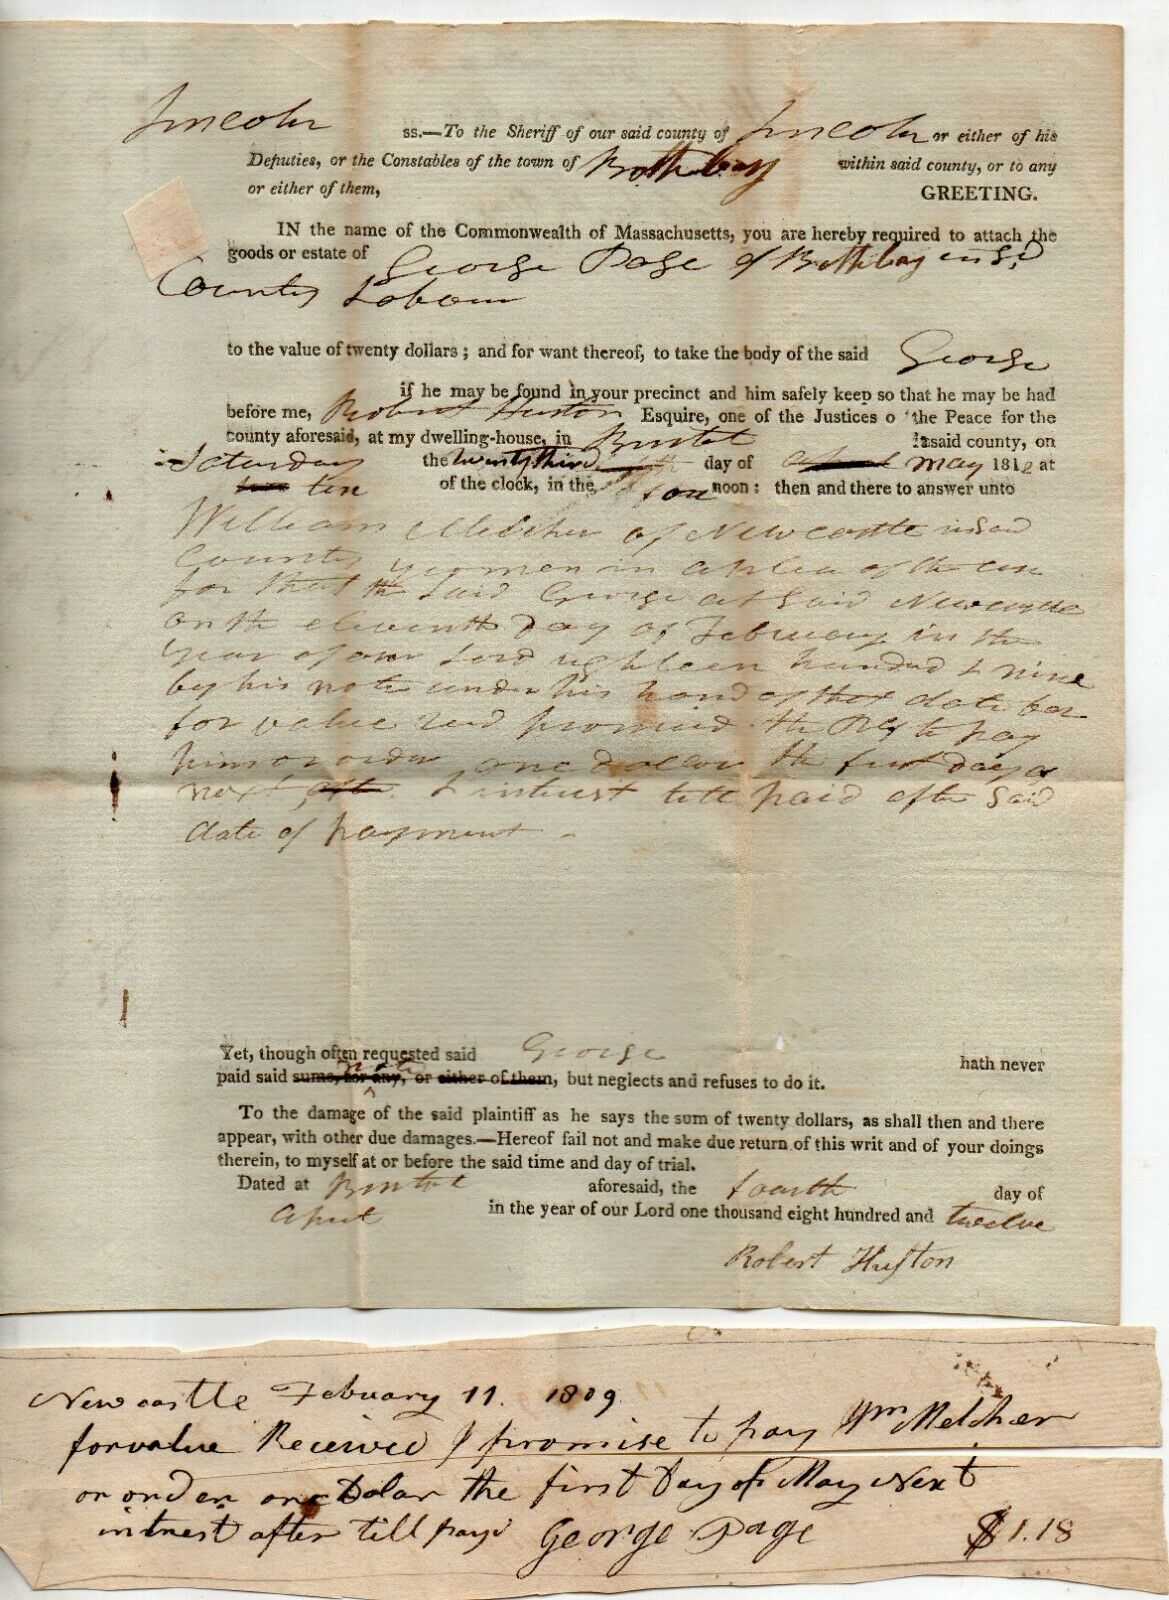 Lincoln ss.—To the Sheriff of our said county of Lincoln or either of his
Deputies, or the Constables of the town of Bothbay within said county, or to any
or either of them, GREETING.
IN the name of the Commonwealth of Massachusetts, you are hereby required to attach the
goods or estate of George Page of Bothbay in sd
County Labourer
to the value of twenty dollars; and for want thereof, to take the body of the said George
if he may be found in your precinct and him safely keep so that he may be had
before me, Robert Huston Esquire, one of the Justices o the Peace for the
county aforesaid, at my dwelling-house, in Bristol in said county, on
Saturday the twenty third day of April May 1812 at
ten of the clock, in the fore noon; then and there to answer unto
William Melcher of Newcastle in said
County yeoman in a plea of the case
for that the said George at said Newcastle
on the eleventh Day of February in the
year of our Lord eighteen hundred & nine
by his note under his hand of that date for
for value recd promised the to pay
him or order one dollar the first day of
next after & interest till paid after said
date of payment
Yet, though often requested said George hath never
note
paid said sums, nor any, or either of them, but neglects and refuses to do it.
To the damage of the said plaintiff as he says the sum of twenty dollars, as shall then and there
appear, with other due damages.—Hereof fail not and make due return of this writ and of your doings
therein, to myself at or before the said time and day of trial.
Dated at Bristol aforesaid, the fourth day of
April in the year of our Lord one thousand eight hundred and twelve
Robert Huston
Newcastle Febuary 11. 1809
for value Received I promise to pay Wm Melcher
or order one Dolar the first Day of May Next
intrest after till payd George Page $1.18